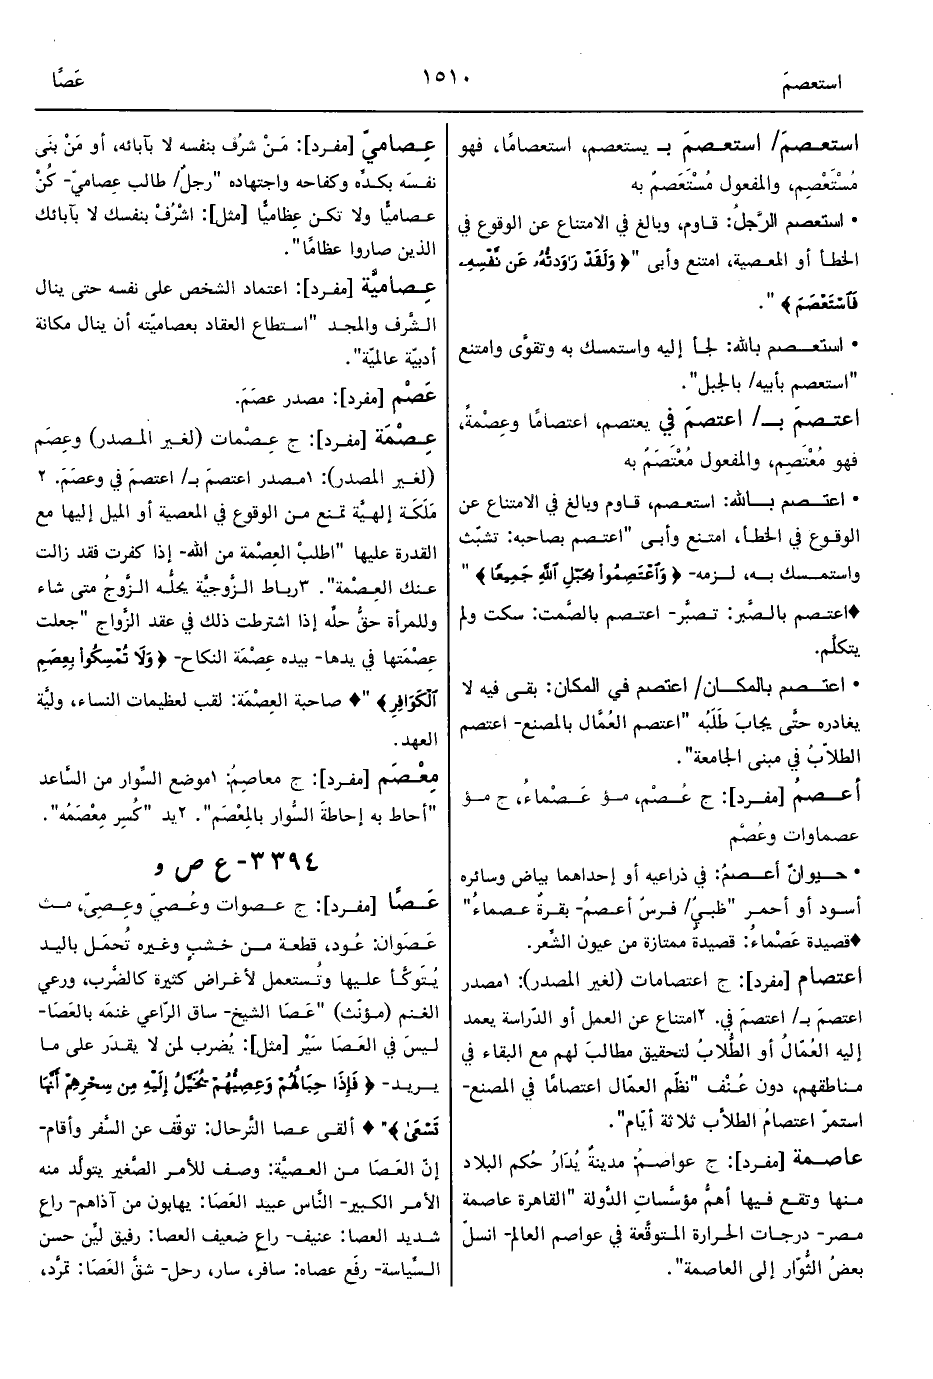 استعصمَ
١٥١٠
عَصًا
استعصمَ/ استعصمَ بـ يستعصم، استعصامًا، فهو
مُسْتَعْصِم، والمفعول مُسْتَعْصَمٌ به
• استعصم الرَّجلُ: قاوم، وبالغ في الامتناع عن الوقوع في
الخطأ أو المعصية، امتنع وأبى "﴿ وَلَقَدْ رَاوَدتُّهُۥ عَن نَّفْسِهِۦ
فَٱسْتَعْصَمَ ﴾ ".
• استعصم بالله: لجأ إليه واستمسك به وتقوَّى وامتنع
"استعصم بأبيه/ بالجبل".
اعتصمَ بـ/ اعتصمَ في يعتصم، اعتصامًا وعِصْمةً،
فهو مُعْتَصِم، والمفعول مُعْتَصَمٌ به
• اعتصم بالله: استعصم، قاوم وبالغ في الامتناع عن
الوقوع في الخطأ، امتنع وأبى "اعتصم بصاحبه: تشبّث
واستمسك به، لزمه- ﴿ وَٱعْتَصِمُوا۟ بِحَبْلِ ٱللَّهِ جَمِيعًا ﴾ "
♦اعتصم بالصَّبر: تصبَّر- اعتصم بالصَّمت: سكت ولم
يتكلَّم.
• اعتصم بالمكان/ اعتصم في المكان: بقى فيه لا
يغادره حتَّى يجابَ طَلَبُه "اعتصم العُمَّال بالمصنع- اعتصم
الطلاّبُ في مبنى الجامعة".
أعصمُ [مفرد]: ج عُصْم، مؤ عَصْماءُ، ج مؤ
عصماوات وعُصْم
• حيوانٌ أعصمُ: في ذراعيه أو إحداهما بياض وسائره
أسود أو أحمر "ظبيٌ/ فرسٌ أعصمُ- بقرةٌ عصماءُ"
♦قصيدة عَصْماءُ: قصيدة ممتازة من عيون الشِّعر.
اعتصام [مفرد]: ج اعتصامات (لغير المصدر): ١مصدر
اعتصمَ بـ/ اعتصمَ في. ٢امتناع عن العمل أو الدِّراسة يعمد
إليه العُمَّالُ أو الطُّلابُ لتحقيق مطالبَ لهم مع البقاء في
مناطقهم، دون عُنْف "نظّم العمّال اعتصامًا في المصنع-
استمرّ اعتصامُ الطلاَب ثلاثة أيّام".
عاصمة [مفرد]: ج عواصمُ: مدينةٌ يُدَارُ حُكم البلاد
منها وتقع فيها أهمُّ مؤسَّساتِ الدَّولة "القاهرة عاصمة
مصر- درجات الحرارة المتوقَّعة في عواصم العالم- انسلّ
بعضُ الثُّوّار إلى العاصمة".
عِصاميّ [مفرد]: مَنْ شرُف بنفسه لا بآبائه، أو مَنْ بنَى
نفسَه بكدِّه وكفاحه واجتهاده "رجلٌ/ طالب عِصاميّ- كُنْ
عصاميًّا ولا تكن عِظاميًّا [مثل]: اشْرُفْ بنفسك لا بآبائك
الذين صاروا عظامًا".
عِصاميَّة [مفرد]: اعتماد الشخص على نفسه حتى ينال
الشَّرف والمجد "استطاع العقاد بعصاميّته أن ينال مكانة
أدبيّة عالميّة".
عَصْم [مفرد]: مصدر عصَمَ.
عِصْمَة [مفرد]: ج عِصْمات (لغير المصدر) وعِصَم
(لغير المصدر): ١مصدر اعتصمَ بـ/ اعتصمَ في وعصَمَ. ٢
مَلَكَة إلهيَّة تمنع من الوقوع في المعصية أو الميل إليها مع
القدرة عليها "اطلبْ العِصْمة من الله- إذا كفرت فقد زالت
عنك العِصْمة". ٣رباط الزَّوجيَّة يحلُّه الزَّوجُ متى شاء
وللمرأة حقُّ حلِّه إذا اشترطت ذلك في عقد الزَّواج "جعلت
عِصْمَتَها في يدها- بيده عِصْمَة النكاح- ﴿ وَلَا تُمْسِكُوا۟ بِعِصَمِ
ٱلْكَوَافِرِ ﴾ "♦ صاحبة العِصْمَة: لقب لعظيمات النساء، وليَّة
العهد.
مِعْصَم [مفرد]: ج معاصِمُ: ١موضع السِّوار من السَّاعد
"أحاط به إحاطةَ السُّوار بالمِعْصَم". ٢يد "كُسِر مِعْصَمُه".
٣٣٩٤- ع ص و
عَصًا [مفرد]: ج عصوات وعُصيّ وعِصِيّ، مث
عَصَوان: عُود، قطعة من خشبٍ وغيره تُحمَل باليد
يُتَوكَّأ عليها وتُستعمل لأغراض كثيرة كالضَّرب، ورعي
الغنم (مؤنّث) "عَصَا الشيخ- ساق الرَّاعي غنمَه بالعَصَا-
ليسَ في العَصَا سَيْر [مثل]: يُضرب لمن لا يقدَر على ما
يريد- ﴿ فَإِذَا حِبَالُهُمْ وَعِصِيُّهُمْ يُخَيَّلُ إِلَيْهِ مِن سِحْرِهِمْ أَنَّهَا
تَسْعَىٰ ﴾"♦ ألقى عصا التَّرحال: توقَّف عن السَّفر وأقام-
إنّ العَصَا من العصيَّة: وصف للأمر الصَّغير يتولَّد منه
الأمر الكبير- النَّاس عبيد العَصَا: يهابون من آذاهم- راعٍ
شديد العصا: عنيف- راعٍ ضعيف العصا: رفيق ليِّن حسن
السِّياسة- رفَع عصاه: سافر، سار، رحل- شقَّ العَصَا: تمرَّد،